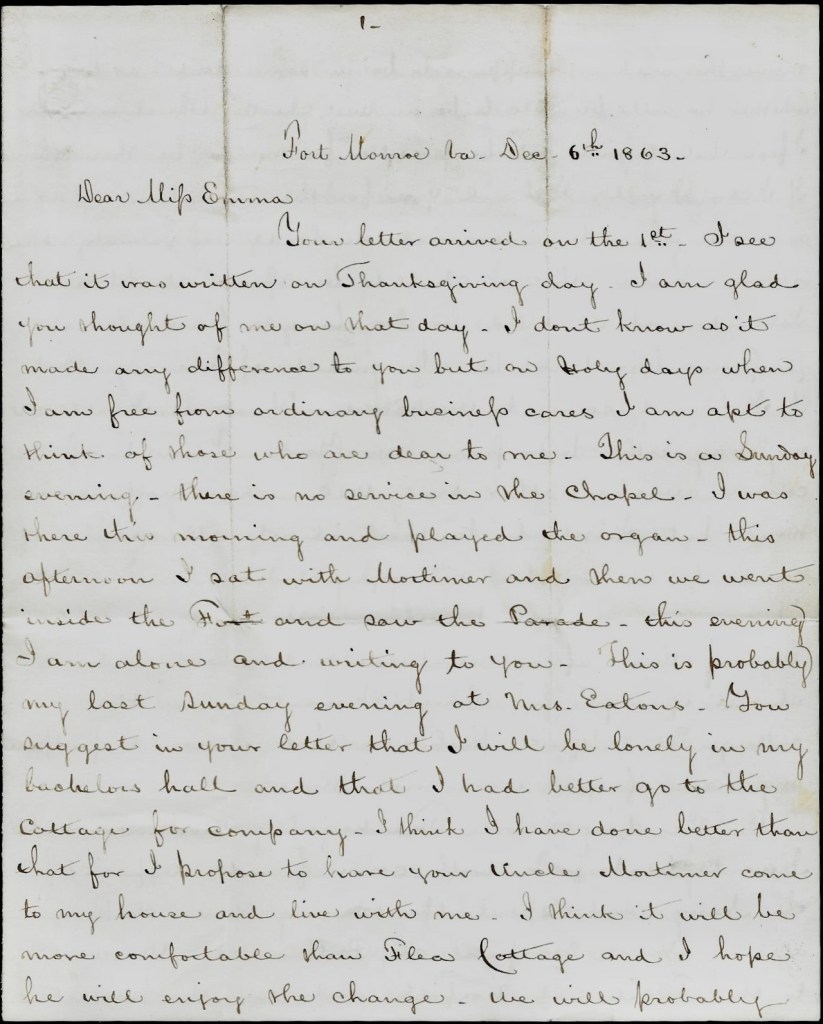 1-
Fort Monroe Va. Dec. 6th 1863.
Dear Miss Emma
Your letter arrived on the 1st. I see
that it was written on Thanksgiving day. I am glad
you thought of me on that day - I dont know as it
made any difference to you but on Holy days when
I am free from ordinary business cares I am apt to
think of those who are dear to me - This is a Sunday
evening - there is no service in the Chapel - I was
there this morning and played the organ - this
afternoon I sat with Mortimer and then we went
inside the Fort and saw the Parade - this evening
I am alone and writing to you - This is probably
my last Sunday evening at Mrs. Eatons - You
suggest in your letter that I will be lonely in my
bachelors hall and that I had better go to the
Cottage for company - I think I have done better than
that for I propose to have your Uncle Mortimer come
to my house and live with me - I think it will be
more comfortable than Flea Cottage and I hope
he will enjoy the change - we will probably